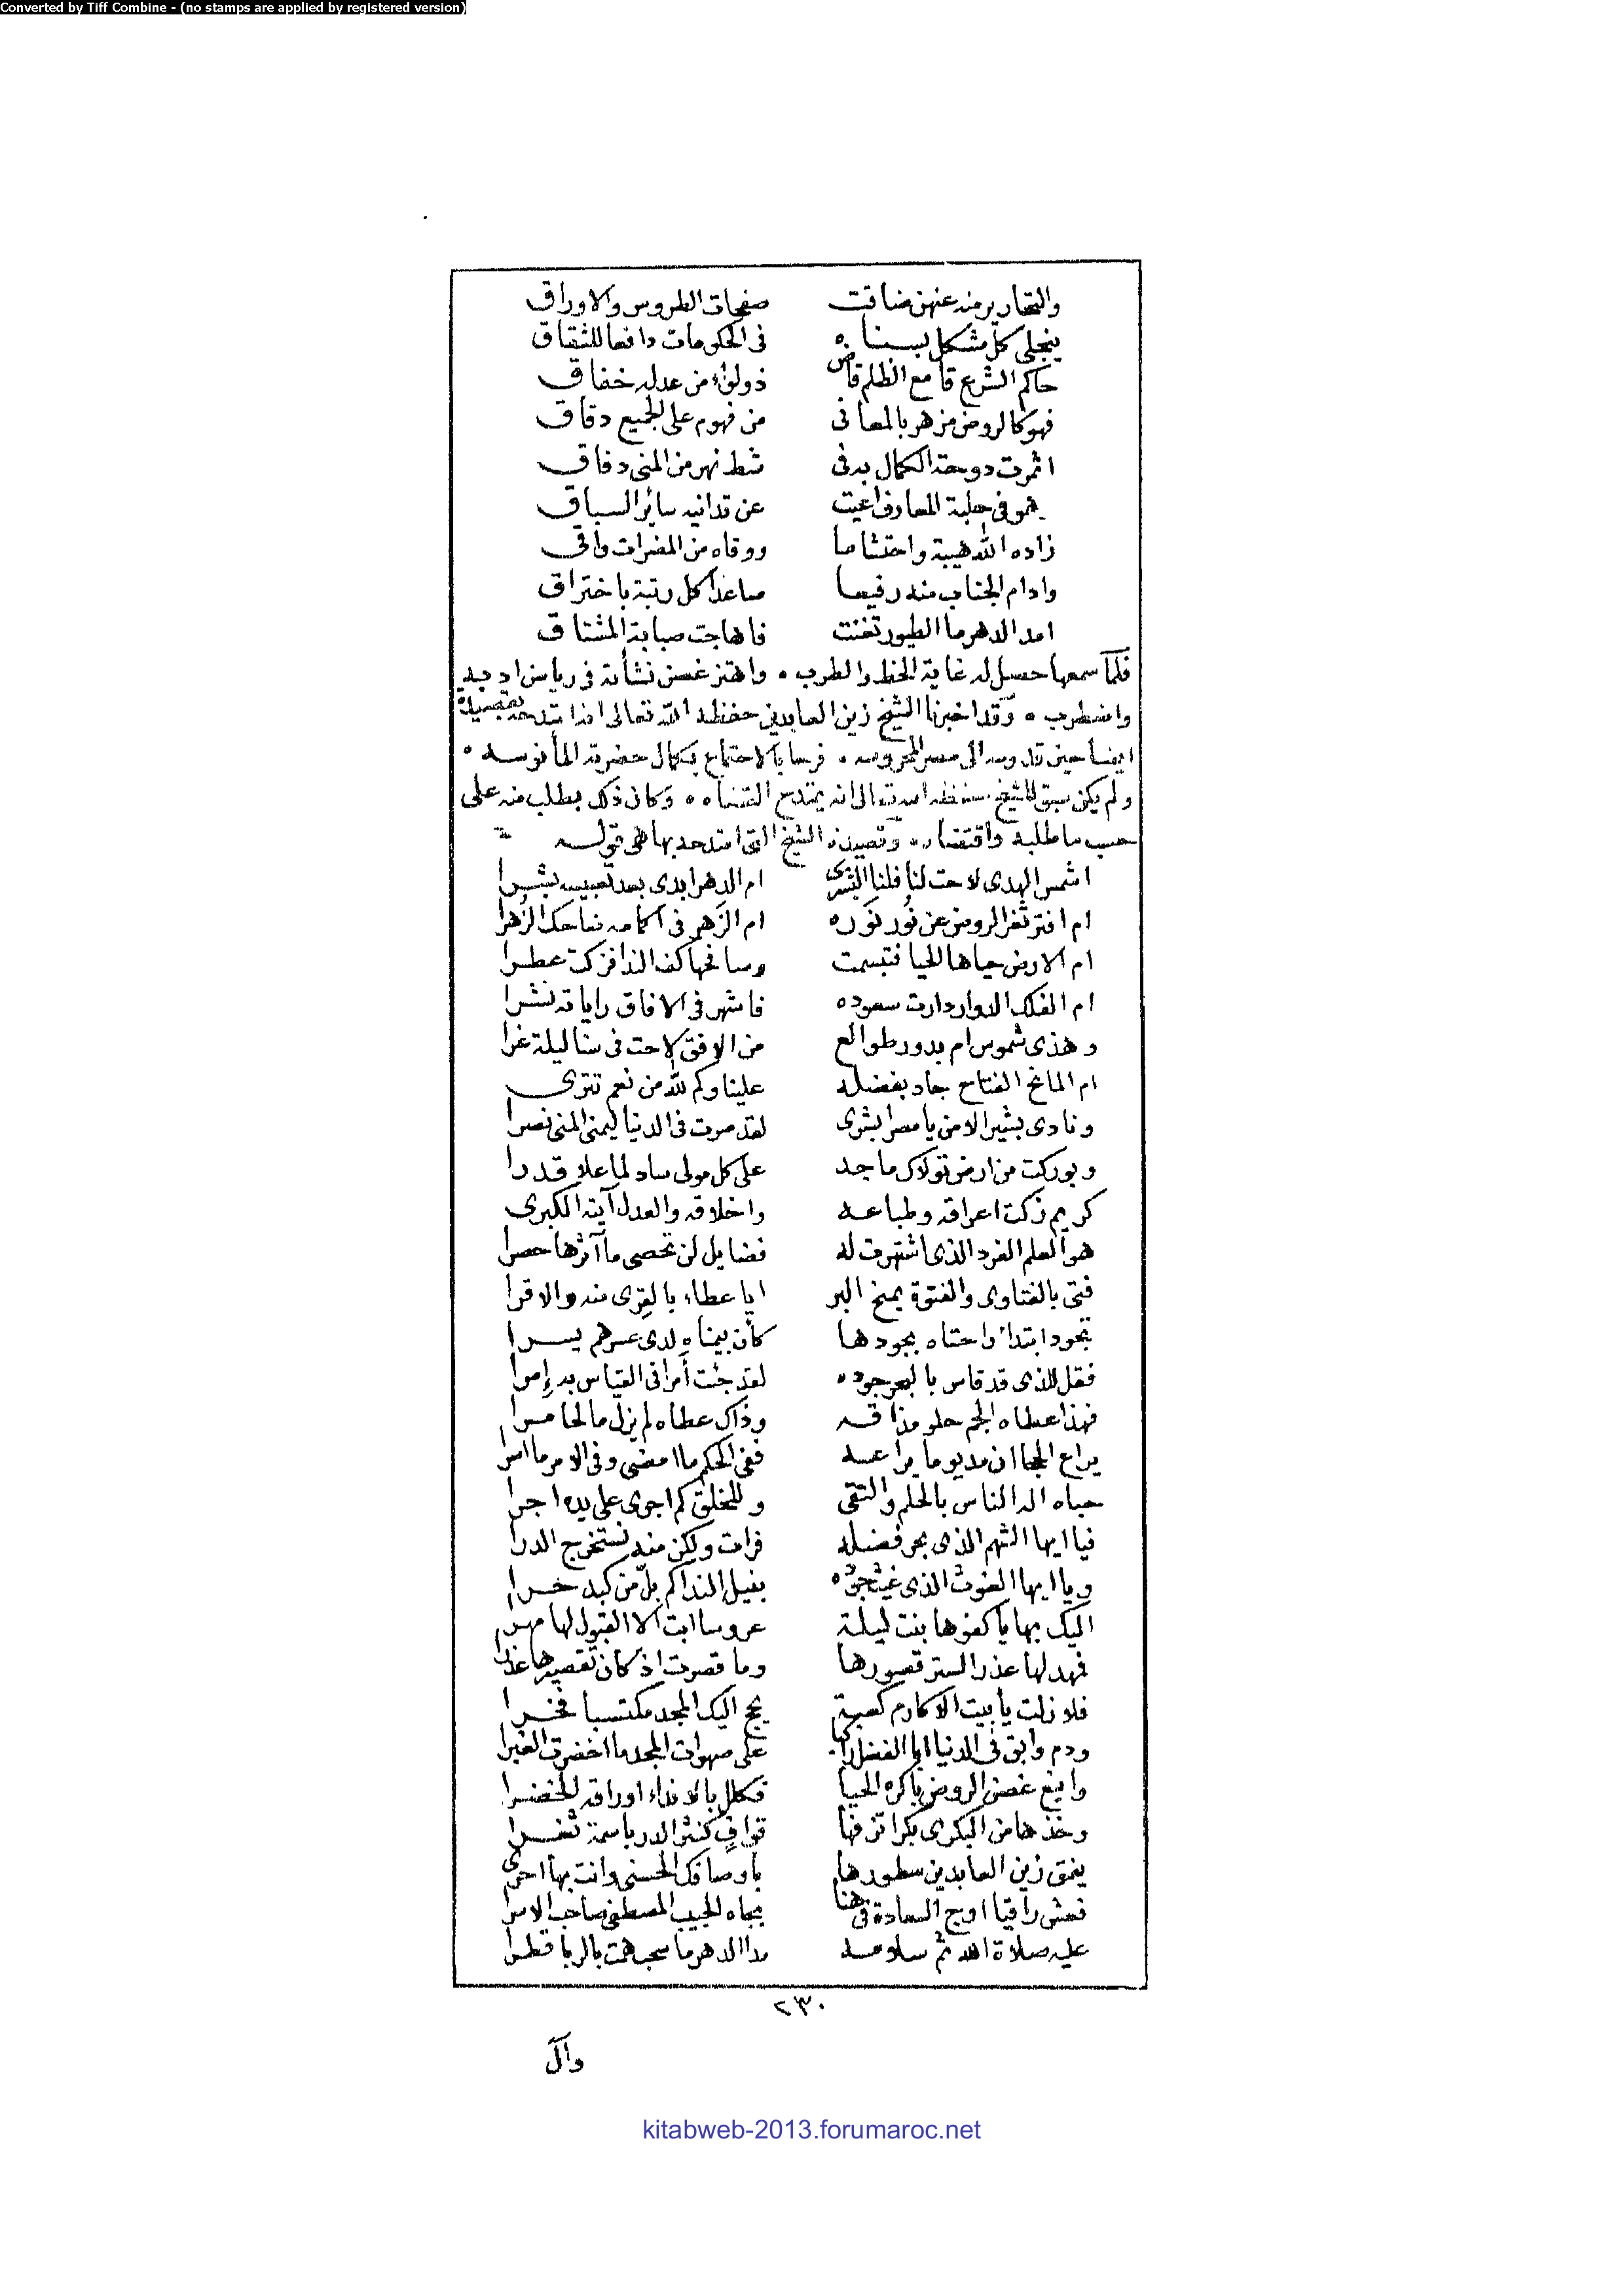 Converted by Tiff Combine - (no stamps are applied by registered version)
والتحارير منه عنهن ضاقت صفحات الطروس والاوراق
ينجلى كل مشكل بسناه فى الحكومات دافعا للشقاق
حاكم الشرع قامع الظلم قاض ذو لواء من عدله خفاق
فهو كالروض مزهر بالمعانى من فهوم على الجميع دقاق
اثمرت دوحة الكمال به فى شط نهر من المنى دفاق
هو فى حلبة المعارف اعيت عن تدانيه سائر السباق
زاده الله هيبة واحتشاما ووقاه من المضرات واقى
وادام الجناب منه رفيعا صاعدا كل رتبة باختراق
امد الدهر ما الطيور تغنت فاهاجت صبابة المشتاق
فلما سمعها حصل له غاية الحظ والطرب ٥ واهتز غصن نشأته فى رياض
واضطرب ٥ وقد اخبرنا الشيخ زين العابدين حفظه الله تعالى انه امتدحه بقصيدة
ايضا حين قدومه الى مصر المحروسه ٥ فرحا بالاجتماع بكمال حضرته المأنوسه ٥
ولم يكن سبق للشيخ حفظه الله تعالى انه يمتدح القضاه ٥ وكان ذلك بطلب منه على
حسب ما طلبه واقتضاه ٥ وقصيدة الشيخ التى امتدحه بها هى قوله
اشمس الهدى لاحت لنا فلنا البشرى ام الدهر ابدى بعد تعبيسه بشرا
ام افتر ثغر الروض عن نور نوره ام الزهر فى اكمامه ضاحك الزهرا
ام الارض حياها الحيا فتبسمت وصافحها كف الندا فزكت عطرا
ام الفلك الدوار دارت سعوده فاشهر فى الافاق راياته نشرا
وهذى شموس ام بدور طوالع من الافق لاحت فى سنا ليلة غرا
ام المانح الفتاح جاد بفضله علينا وكم لله من نعم تترى
ونادى بشير الامن يا مصر ابشرى لقد صرت فى الدنيا ليمنى المنى نصرا
وبوركت من ارض تولاك ماجد على كل مولى ساد لما علا قدرا
كريم زكت اعراقه وطباعه واخلاقه والعدل آيته الكبرى
هو العلم الفرد الذى اشتهرت له فضايل لن تحصى مآثرها حصرا
فتى بالفتاوى والفتوة يمنح البر ايا عطاء بالقرى منه والاقرا
تجود ابتداء راحتاه بجودها كأن بيمناه لدى عسرهم يسرا
فقل للذى قد قاس بالبحر جوده لقد جئت أمرا فى القياس به إمرا
فهذا عطاه الجم حلو مذاقه وذاك عطاه لم يزل مالحا مرا
يراع الحجا ان مد يوما يراعه ففى الحكم ما امضى وفى الامر ما اسرا
حباه اله الناس بالحلم والتقى وللخلق كم اجرى على يده اجرا
فيا ايها الشهم الذى بحر فضله فرات ولكن منه نستخرج الدرا
ويا ايها الغوث الذى غيث جوده بفيل الندا كم بل من كبد حرا
اليك بها يا كفوها بنت ليلة عروسا ابت الا القبول لها مهرا
فمهد لها عذرا لستر قصورها وما قصرت اذ كان تقصيرها عذرا
فلا زلت يا بيت الاكارم كعبة يحج اليك المجد مكتسبا فخرا
ودم وابق فى الدنيا ابا الفضل راكبا على صهوات المجد ما اخضرت الغبرا
واينع غصن الروض باكره الحيا فكلل بالانداء اوراقه الخضرا
وخذها من البكرى بكرا تزفها قواف كنثر الدر باسمة ثغرا
ينمق زين العابدين سطورها باوصافك الحسنى وانت بها احرى
فعش راقيا اوج السعادة فى هنا بجاه الحبيب المصطفى صاحب الاسرا
عليه صلاة الله ثم سلامه مدا الدهر ما سحب همت بالربا قطرا
٢٣٠
وآل
kitabweb-2013.forumaroc.net